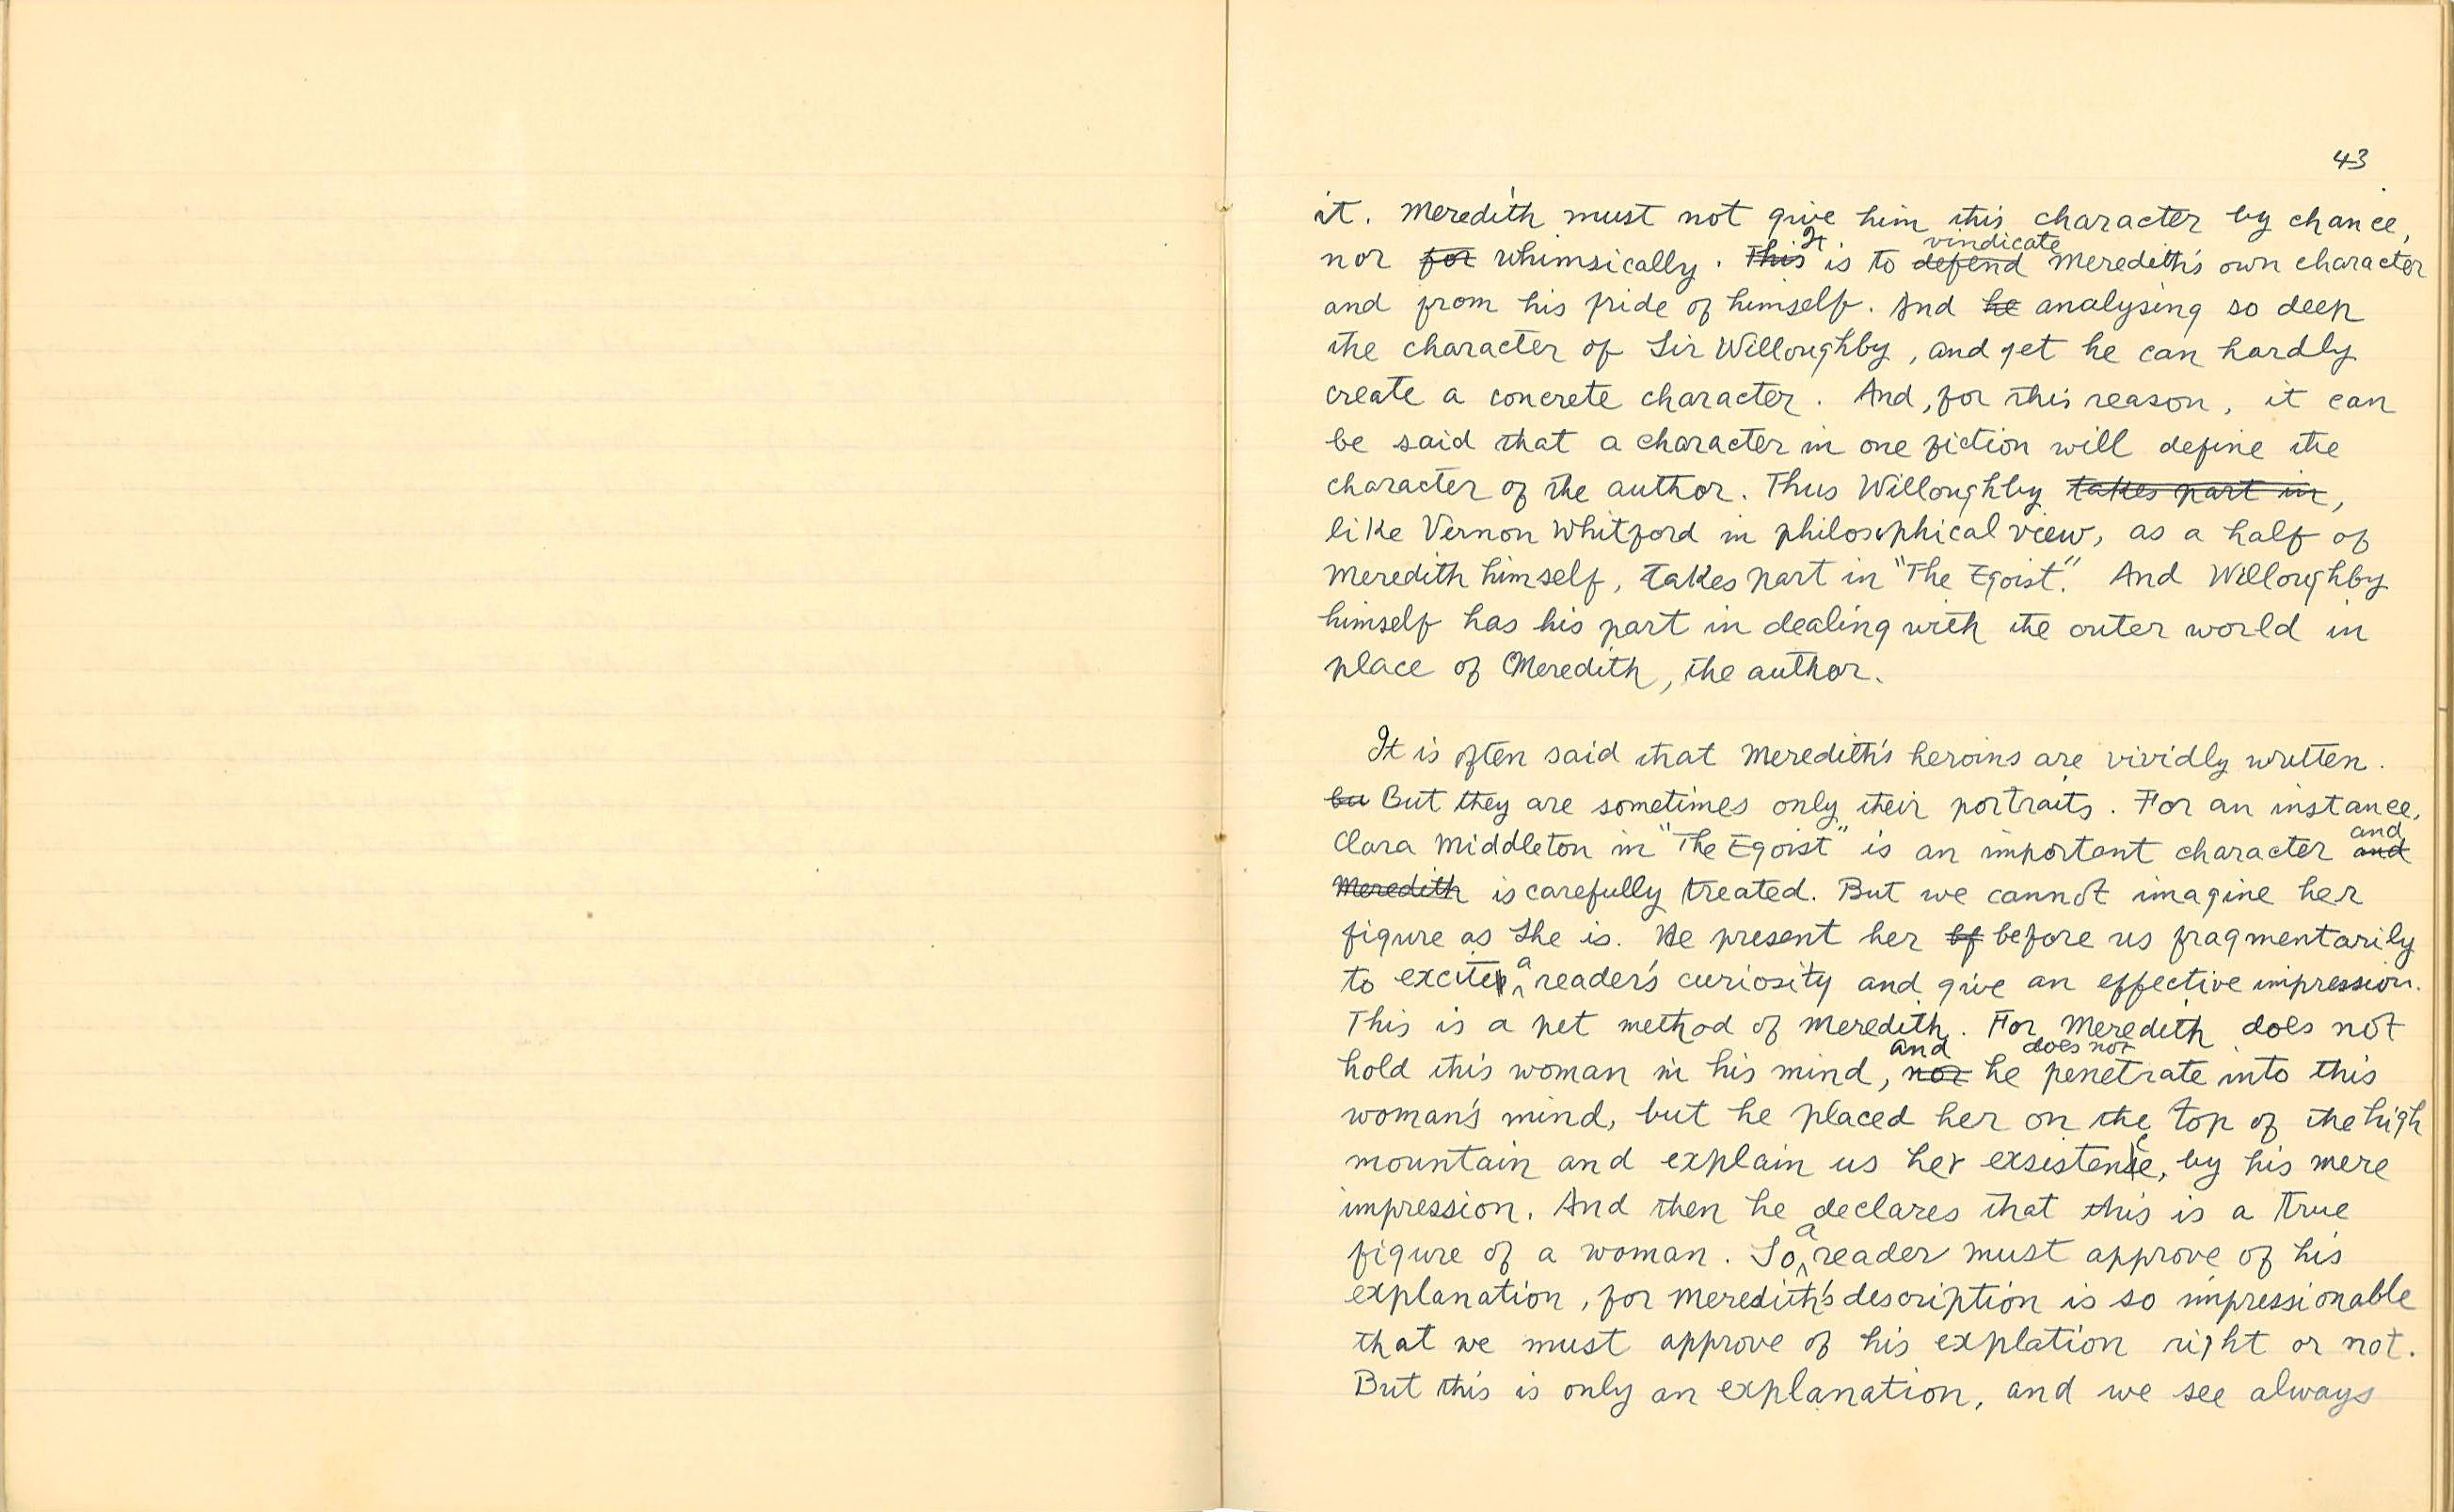 43
it. Meredith must not give him this character by chance,
nor for whimsically. This It is to defend vindicate Meredith's own character
and from his pride of himself. And he analysing so deep
the character of Sir Willoughby, and yet he can hardly
create a concrete character. And, for this reason, it can
be said that a character in one fiction will define the
character of the author. Thus Willoughby takes part in,
like Vernon Whitford in philosophical view, as a half of
Meredith himself, takes part in "The Egoist." And Willoughby
himself has his part in dealing with the outer world in
place of Meredith, the author.
It is often said that Meredith's heroins are vividly written.
bu But they are sometimes only their portraits. For an instance,
Clara Middleton in "The Egoist" is an important character and and
Meredith is carefully treated. But we cannot imagine her
figure as she is. He present her bf before us fragmentarily
to excite a reader's curiosity and give an effective impression.
This is a pet method of Meredith. For Meredith does not
hold this woman in his mind, nor and he does not penetrate into this
woman's mind, but he placed her on the top of the high
mountain and explain us her exsistence, by his mere
impression. And then he declares that this is a true
figure of a woman. So a reader must approve of his
explanation, for Meredith's description is so impressionable
that we must approve of his explation right or not.
But this is only an explanation, and we see always